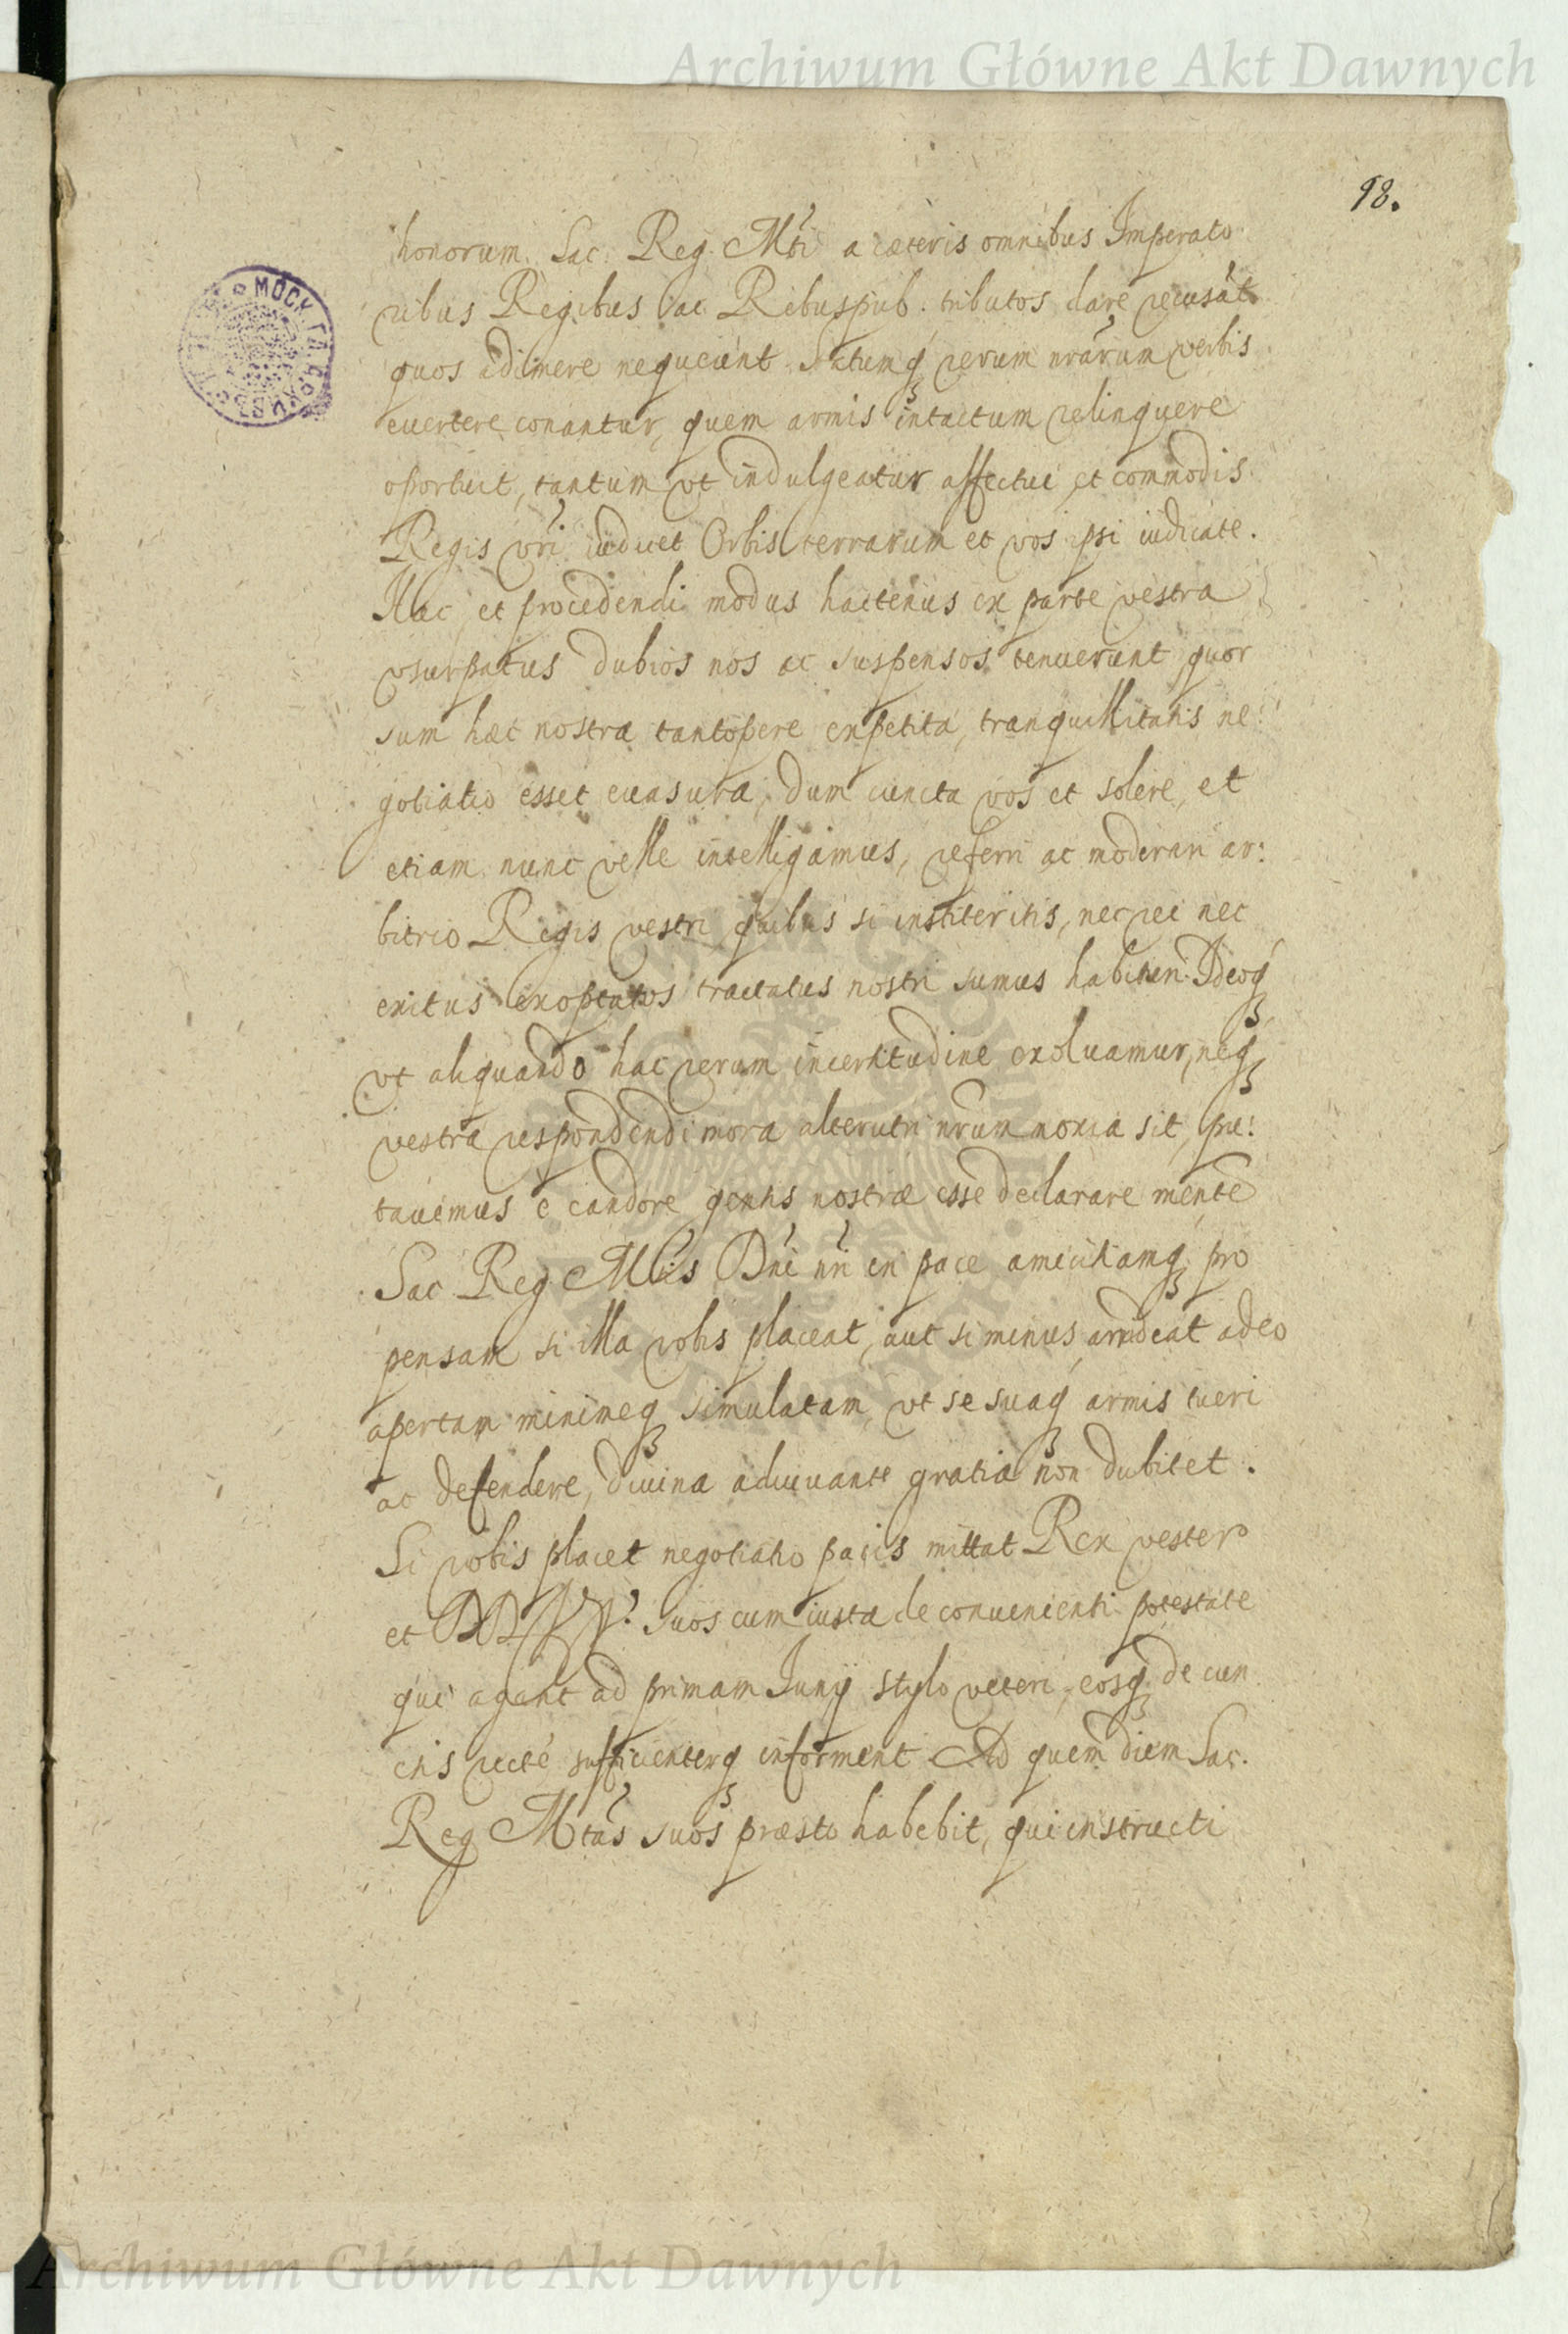 Archiwum Główne Akt Dawnych
98.
honorum Sac: Reg. Mti a cæteris omnibus Imperato
ribus Regibus ac Rebuspub. tributos dare recusāt
quos adimere nequeunt Statumq rerum nrarum verbis
euertere conantur, quem armis intactum relinquere
oportuit, tantum vt indulgeatur affectui et commodis
Regis vri iudicet Orbis terrarum et vos ipsi iudicate.
Hac et procedendi modus hactenus ex parte vestra
vsurpatus dubios nos ac suspensos tenuerunt quor
sum hæc nostra tantopere expetita, tranquillitatis ne:
gotiatio esset euasura, dum cuncta vos et solere, et
etiam nunc velle intelligamus, referri ac moderari ar:
bitrio Regis vestri quibus si institeritis, nec rei nec
exitus exoptatos tractatus nostri sumus habituri. Ideoq
vt aliquando hac rerum incertitudine exoluamur, neq
vestra respondendi mora alterutri nrum noxia sit, pu:
tauimus è candore gentis nostræ esse declarare mentē
Sac Reg Mtis Dni nri in pace amicitiamq pro
pensam si illa vobis placeat, aut si minus arrideat adeo
apertam minimeq simulatam, vt se suaq armis tueri
ac defendere, diuina adiuuante gratia non dubitet.
Si vobis placet negotiatio pacis mittat Rex vester
et DD VV. suos cum iusta de conuenienti potestate
qui agant ad primam Iunij stylo veteri, eosq de cun
ctis recte sufficienterq informent Ad quem diem Sac.
Reg Mtas suos præsto habebit, qui instructi
Archiwum Główne Akt Dawnych